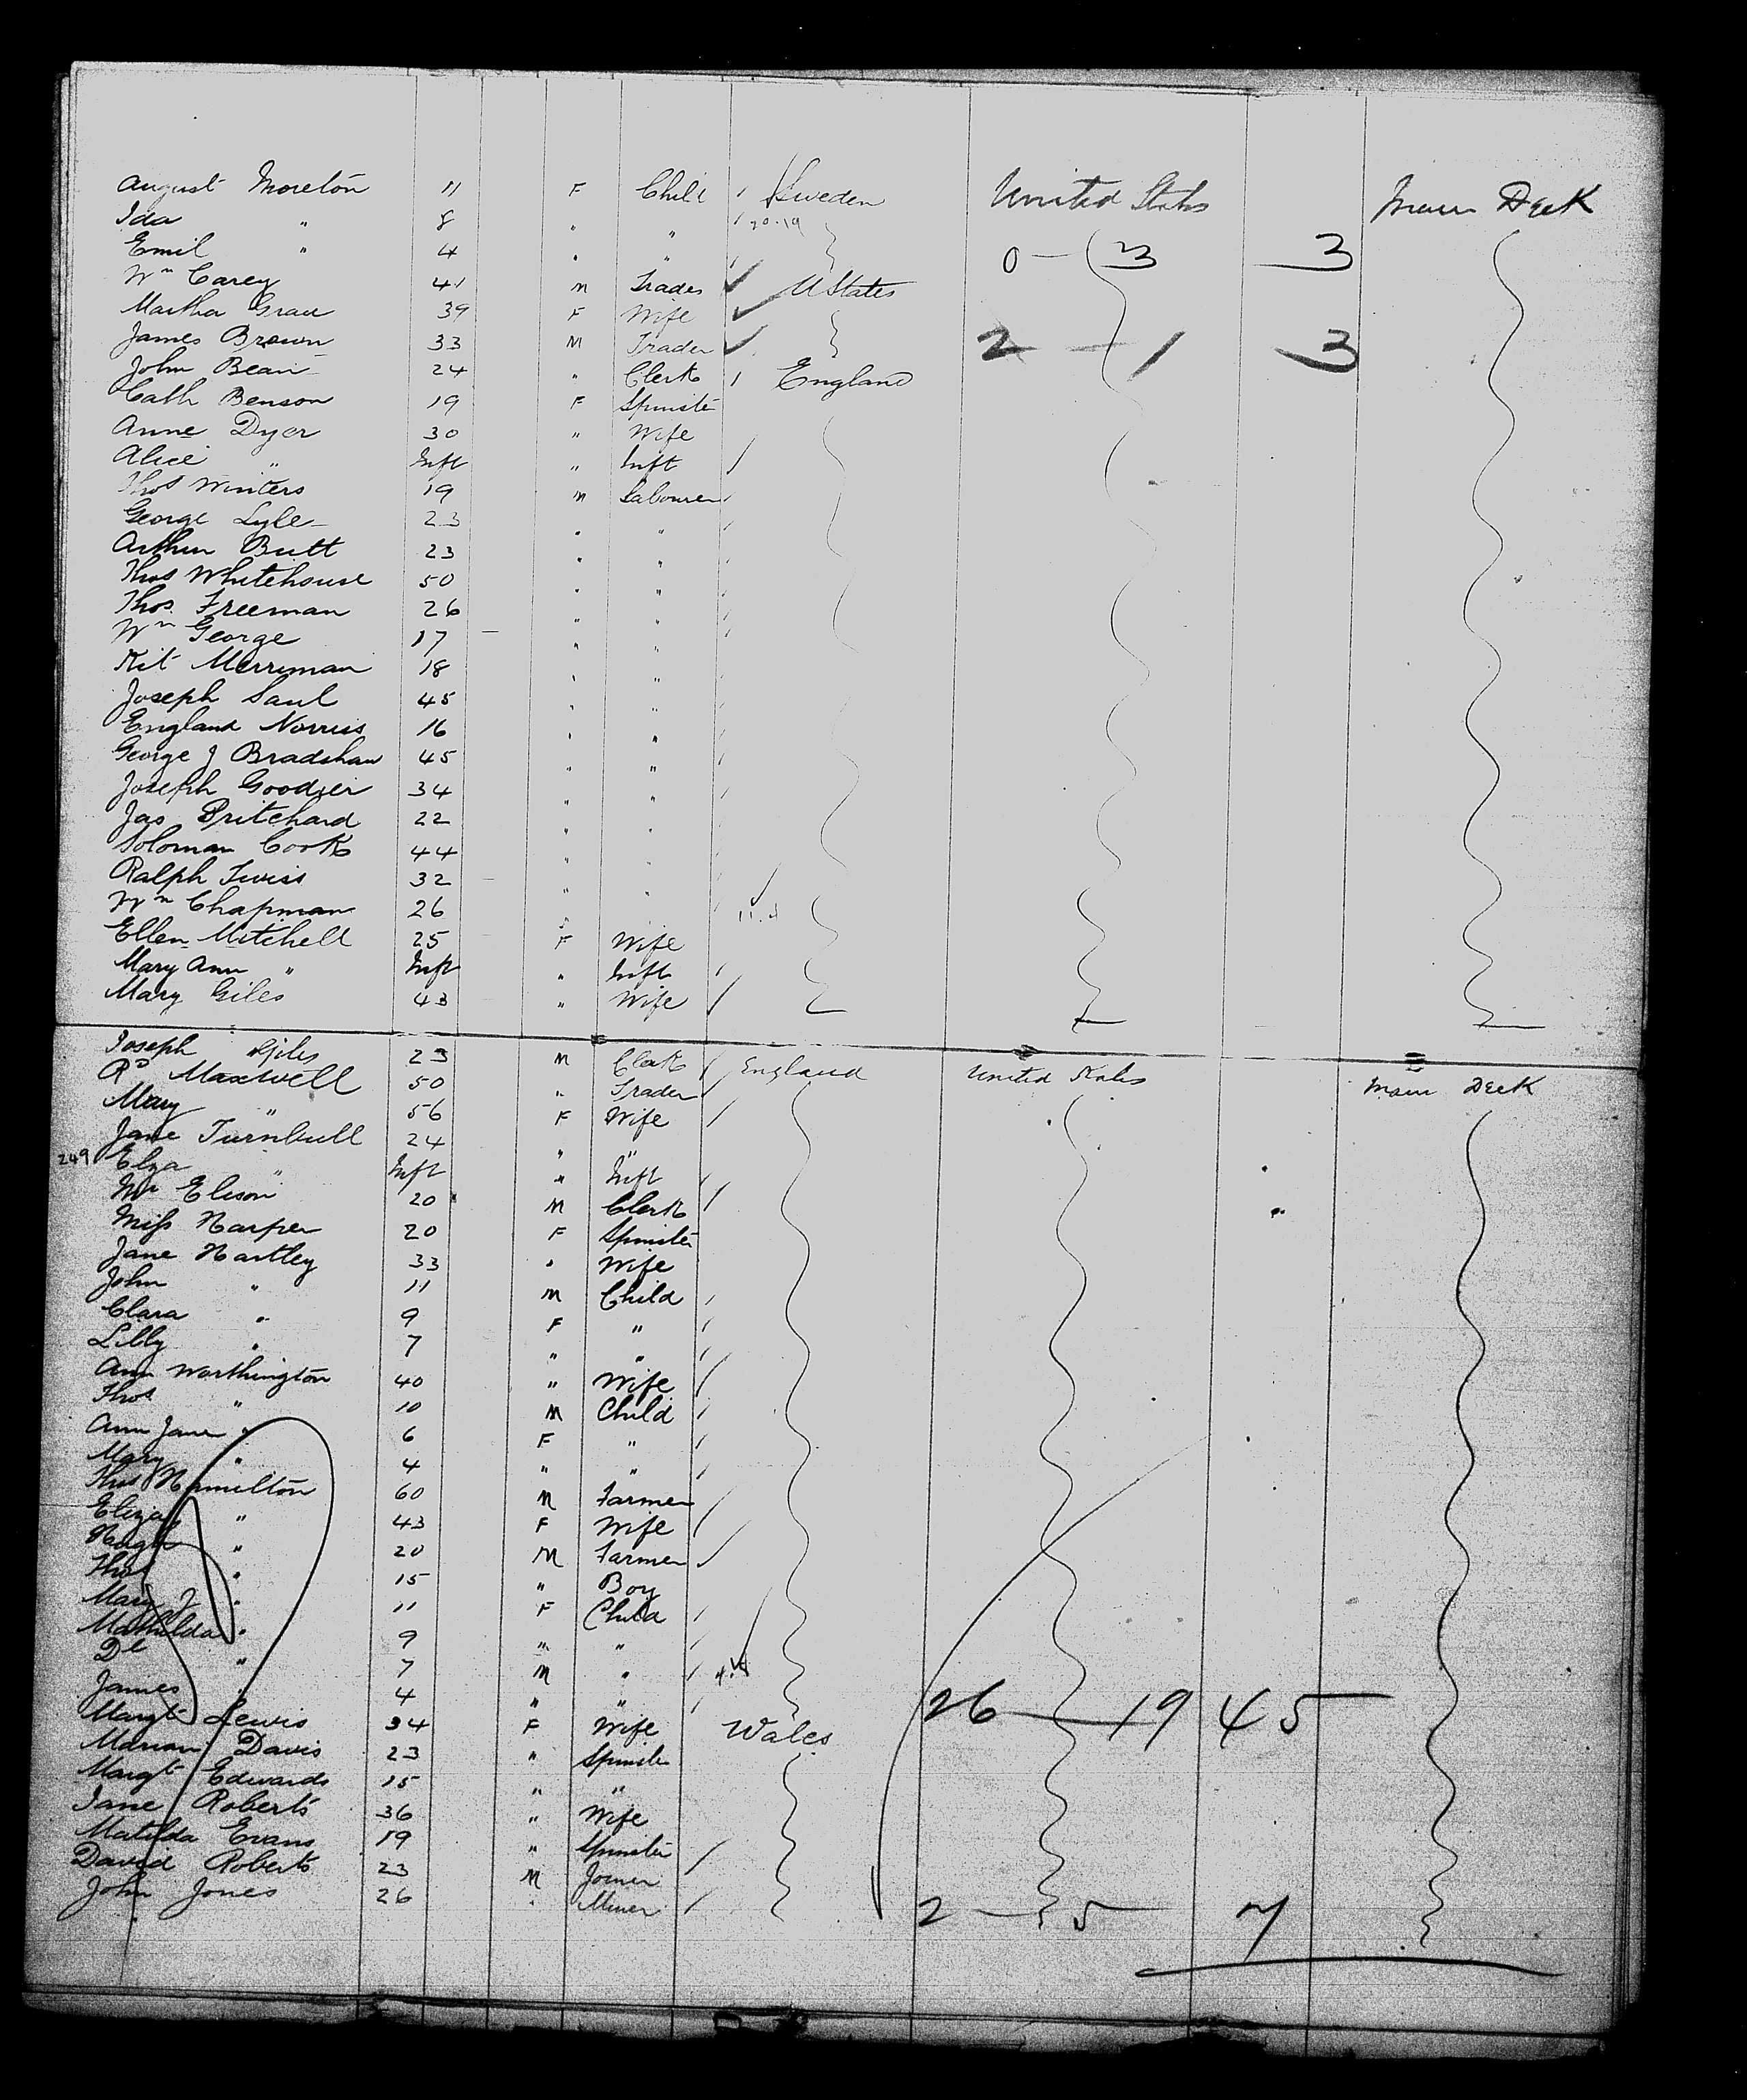 August Moreton 11 F Child Sweden United States Main Deck
Ida " 8 " " 20.19
Emil " 4 " " 0 - 3 3
Wm Carey 41 M Trader UStates
Martha Grace 39 F Wife
James Brown 33 M Trader 2 - 1 3
John Bean 24 " Clerk England
Cath Benson 19 F Spinster
Anne Dyer 30 " Wife
Alice " Inft " Inft
Thos Winters 19 M Labourer
George Lyle 23 " "
Arthur Butt 23 " "
Thos Whitehouse 50 " "
Thos. Freeman 26 " "
Wm George 17 " "
Kit Merriman 18 " "
Joseph Saul 45 " "
England Norris 16 " "
George J Bradshaw 45 " "
Joseph Goodier 34 " "
Jas Pritchard 22 " "
Soloman Cook 44 " "
Ralph Twiss 32 " "
Wm Chapman 26 " "
Ellen Mitchell 25 F Wife
Mary Ann " Inft " Inft
Mary Giles 43 " Wife
Joseph Giles 23 M Clerk England United States Main Deck
Rd Maxwell 50 " Trader
Mary " 56 F Wife
Jane Turnbull 24 " "
249 Elza " Inft " Inft
Mr Elison 20 M Clerk
Miss Harper 20 F Spinster
Jane Hartley 33 " Wife
John " 11 M Child
Clara " 9 F "
Lilly " 7 " "
Ann Worthington 40 " Wife
Thos " 10 M Child
Ann Jane " 6 F "
Mary " 4 " "
Thos Hamilton 60 M Farmer
Eliza " 43 F Wife
Hugh " 20 M Farmer
Thos " 15 " Boy
Mary J " 11 F Child
Mathilda " 9 " "
Dl " 7 M "
James " 4 " " 26 - 19 45
Margt Lewis 34 F Wife Wales
Marian Davis 23 " Spinster
Margt Edwards 15 " "
Jane Roberts 36 " Wife
Matilda Evans 19 " Spinster
David Roberts 23 M Joiner
John Jones 26 " Miner 2 - 5 7